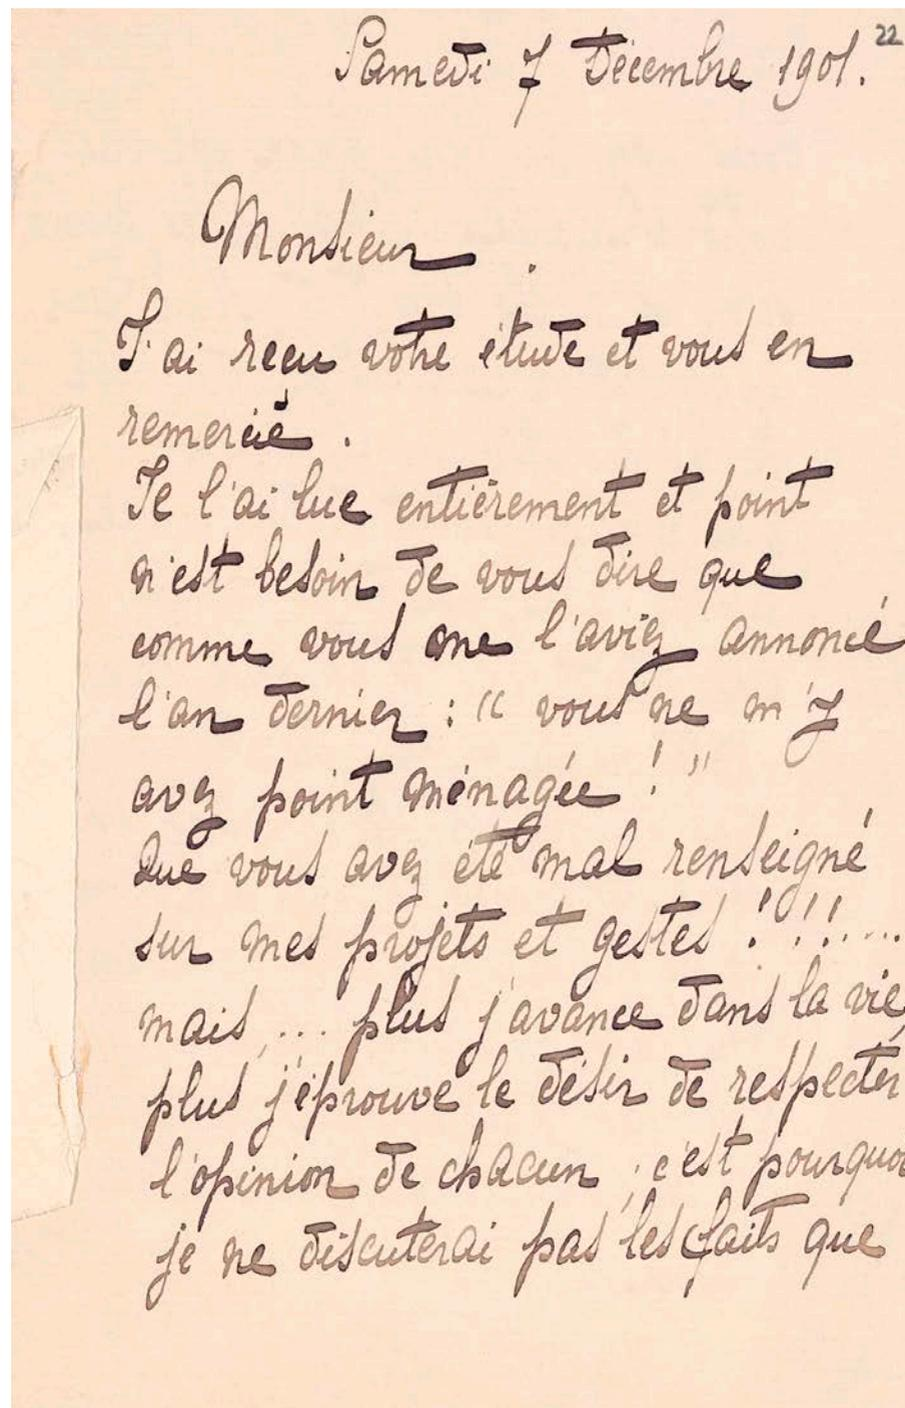 22
Samedi 7 Décembre 1901.
Monsieur.
J'ai recu votre étude et vous en
remercie.
Je l'ai lue entièrement et point
n'est besoin de vous dire que
comme vous me l'aviez annoncé
l'an dernier : " vous ne m'y
avez point ménagée ! "
Que vous avez été mal renseigné
sur mes projets et gestes ! ! ! ....
mais, ... plus j'avance dans la vie,
plus j'éprouve le désir de respecter
l'opinion de chacun, c'est pourquoi
je ne discuterai pas les faits que